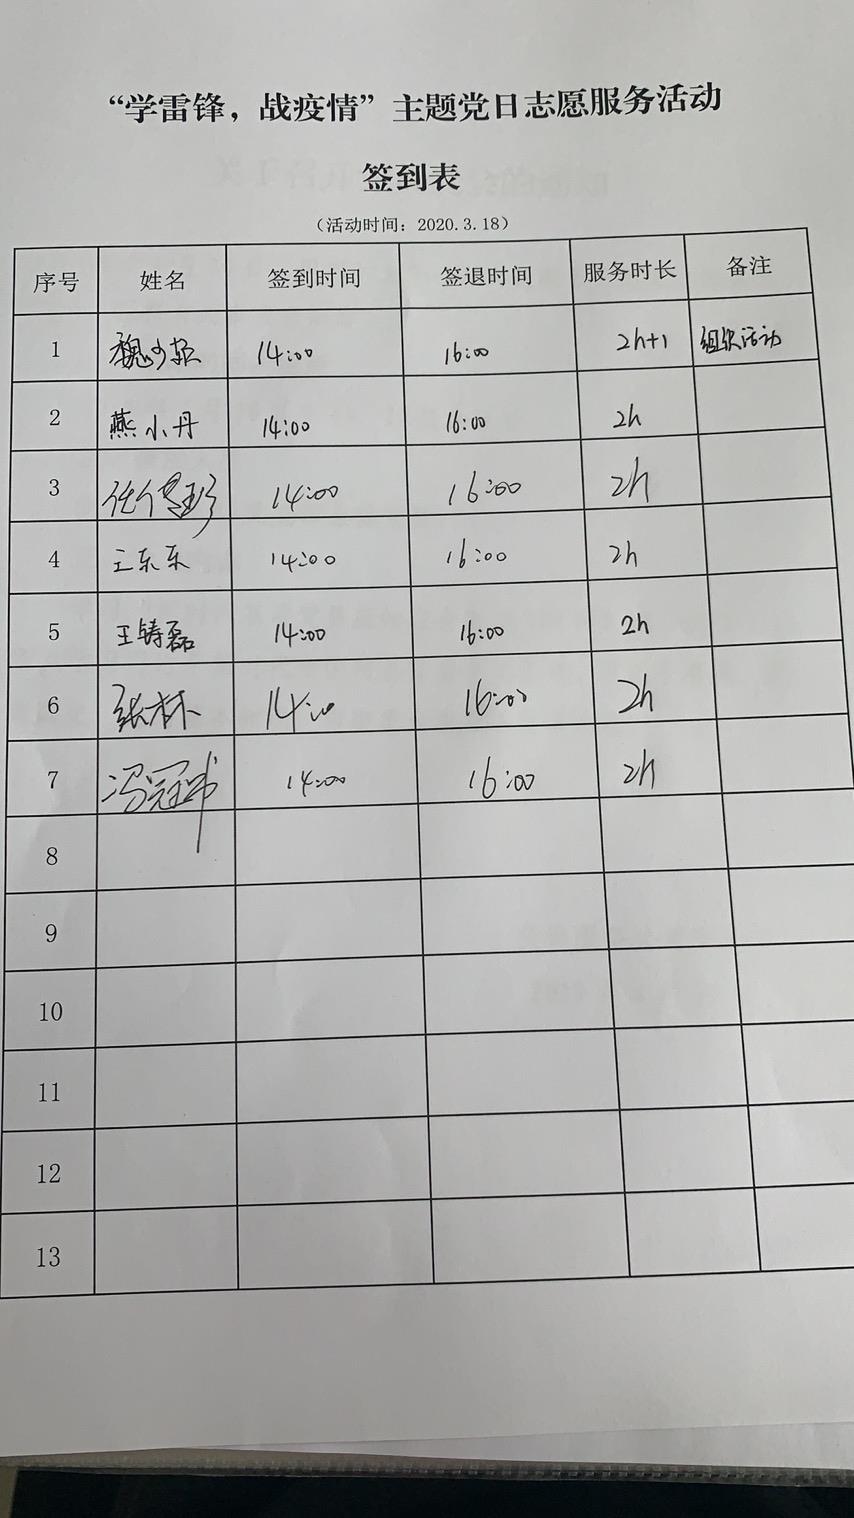 “学雷锋，战疫情”主题党日志愿服务活动
签到表
（活动时间：2020.3.18）
序号 姓名 签到时间 签退时间 服务时长 备注
1 魏少 14:00 16:00 2h+1 组织活动
2 燕小丹 14:00 16:00 2h
3 14:00 16:00 2h
4 王东东 14:00 16:00 2h
5 王铸磊 14:00 16:00 2h
6 张林 14:00 16:00 2h
7 冯冠 14:00 16:00 2h
8
9
10
11
12
13